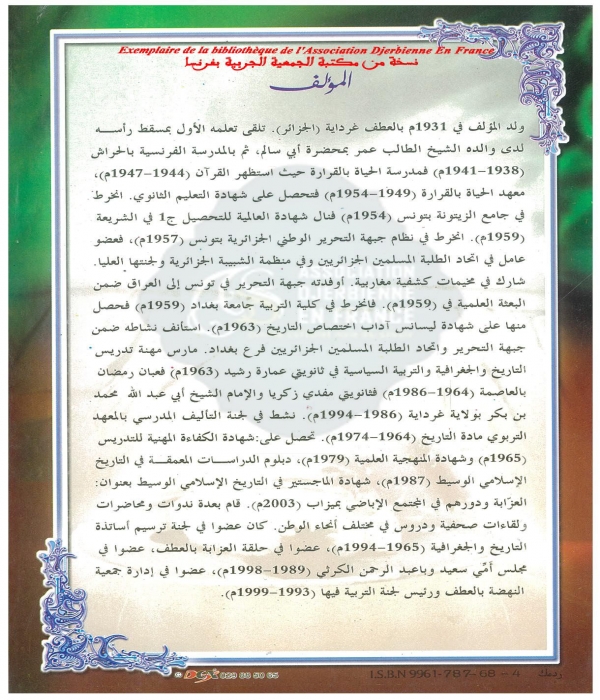 Exemplaire de la bibliothèque de l'Association Djerbienne En France
نسخة من مكتبة الجمعية الجربية بفرنسا
المؤلف
ولد المؤلف في 1931م بالعطف غرداية (الجزائر). تلقى تعلمه الأول بمسقط رأسه
لدى والده الشيخ الطالب عمر بمحضرة أبي سالم، ثم بالمدرسة الفرنسية بالحراش
(1938-1941م) فمدرسة الحياة بالقرارة حيث استظهر القرآن (1944-1947م)،
معهد الحياة بالقرارة (1949-1954م) فتحصل على شهادة التعليم الثانوي. انخرط
في جامع الزيتونة بتونس (1954م) فنال شهادة العالمية للتحصيل ج1 في الشريعة
(1959م). انخرط في نظام جبهة التحرير الوطني الجزائرية بتونس (1957م)، فعضو
عامل في اتحاد الطلبة المسلمين الجزائريين وفي منظمة الشبيبة الجزائرية ولجنتها العليا.
شارك في مخيمات كشفية مغاربية. أوفدته جبهة التحرير في تونس إلى العراق ضمن
البعثة العلمية في (1959م). فانخرط في كلية التربية جامعة بغداد (1959م) فحصل
منها على شهادة ليسانس آداب اختصاص التاريخ (1963م). استأنف نشاطه ضمن
جبهة التحرير واتحاد الطلبة المسلمين الجزائريين فرع بغداد. مارس مهنة تدريس
التاريخ والجغرافية والتربية السياسية في ثانويتي عمارة رشيد (1963م) فعبان رمضان
بالعاصمة (1964-1986م) فثانويتي مفدي زكريا والإمام الشيخ أبي عبد الله محمد
بن بكر بولاية غرداية (1986-1994م). نشط في لجنة التأليف المدرسي بالمعهد
التربوي مادة التاريخ (1964-1974م). تحصل على:شهادة الكفاءة المهنية للتدريس
(1965م) وشهادة المنهجية العلمية (1979م)، دبلوم الدراسات المعمقة في التاريخ
الإسلامي الوسيط (1987م)، شهادة الماجستير في التاريخ الإسلامي الوسيط بعنوان:
العزابة ودورهم في المجتمع الإباضي بميزاب (2003م). قام بعدة ندوات ومحاضرات
ولقاءات صحفية ودروس في مختلف أنحاء الوطن. كان عضوا في لجنة ترسيم أساتذة
التاريخ والجغرافية (1965-1994م)، عضوا في حلقة العزابة بالعطف، عضوا في
مجلس أمّي سعيد وباعبد الرحمن الكرثي (1989-1998م)، عضوا في إدارة جمعية
النهضة بالعطف ورئيس لجنة التربية فيها (1993-1999م).
ASSOCIATION
EN FRANCE
029 88 50 65
ردمك I.S.B.N 9961-787-68-4